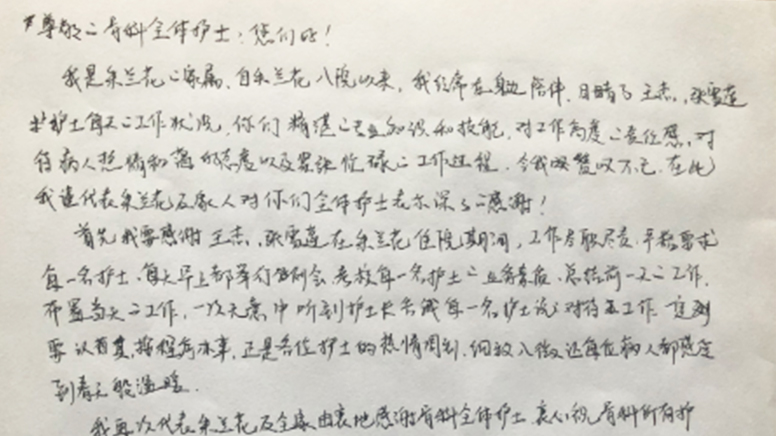 尊敬的骨科全体护士：您们好！
我是朱兰花的家属，自朱兰花入院以来，我经常在身边陪伴，目睹了王杰、张雪莲
护士每天的工作状况，你们精湛的专业知识和技能，对工作高度的责任感，对
待病人热情和蔼的态度以及紧张忙碌的工作过程，令我赞叹不已，在此
我谨代表朱兰花及家人对你们全体护士表示深深的感谢！
首先我要感谢王杰、张雪莲在朱兰花住院期间，工作尽职尽责，严格要求
每一名护士，每天早上都举行例会，考核每一名护士的业务素质，总结前一天的工作，
布置当天的工作，一次无意中听到护士长告诫每一名护士说：对待工作一定到
要认真，正是各位护士的热情周到，细致入微，还每位病人都感受
到春天般温暖。
我再次代表朱兰花及全家由衷地感谢骨科全体护士，衷心祝骨科所有护